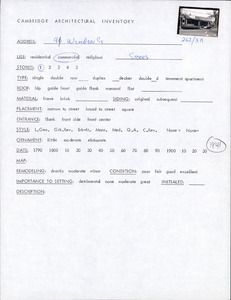 CAMBRIDGE ARCHITECTURAL INVENTORY
ADDRESS:
262/8A
USE: residential commercial religious Stores
STORIES: 1 2 3 4 5
TYPE: single double row duplex decker double d tenement apartment
ROOF: hip gable front gable flank mansard flat
MATERIAL: frame brick SIDING: original subsequent
PLACEMENT: narrow to street broad to street square
ENTRANCE: flank front side front center
STYLE:
ORNAMENT: little moderate elaborate
DATE: 1790 1800 10 20 30 40 50 60 70 80 90 1900 10 20 30 1941
MAP:
REMODELING: drastic moderate minor CONDITION: poor fair good excellent
IMPORTANCE TO SETTING: detrimental none moderate great INITIALED:
DESCRIPTION: